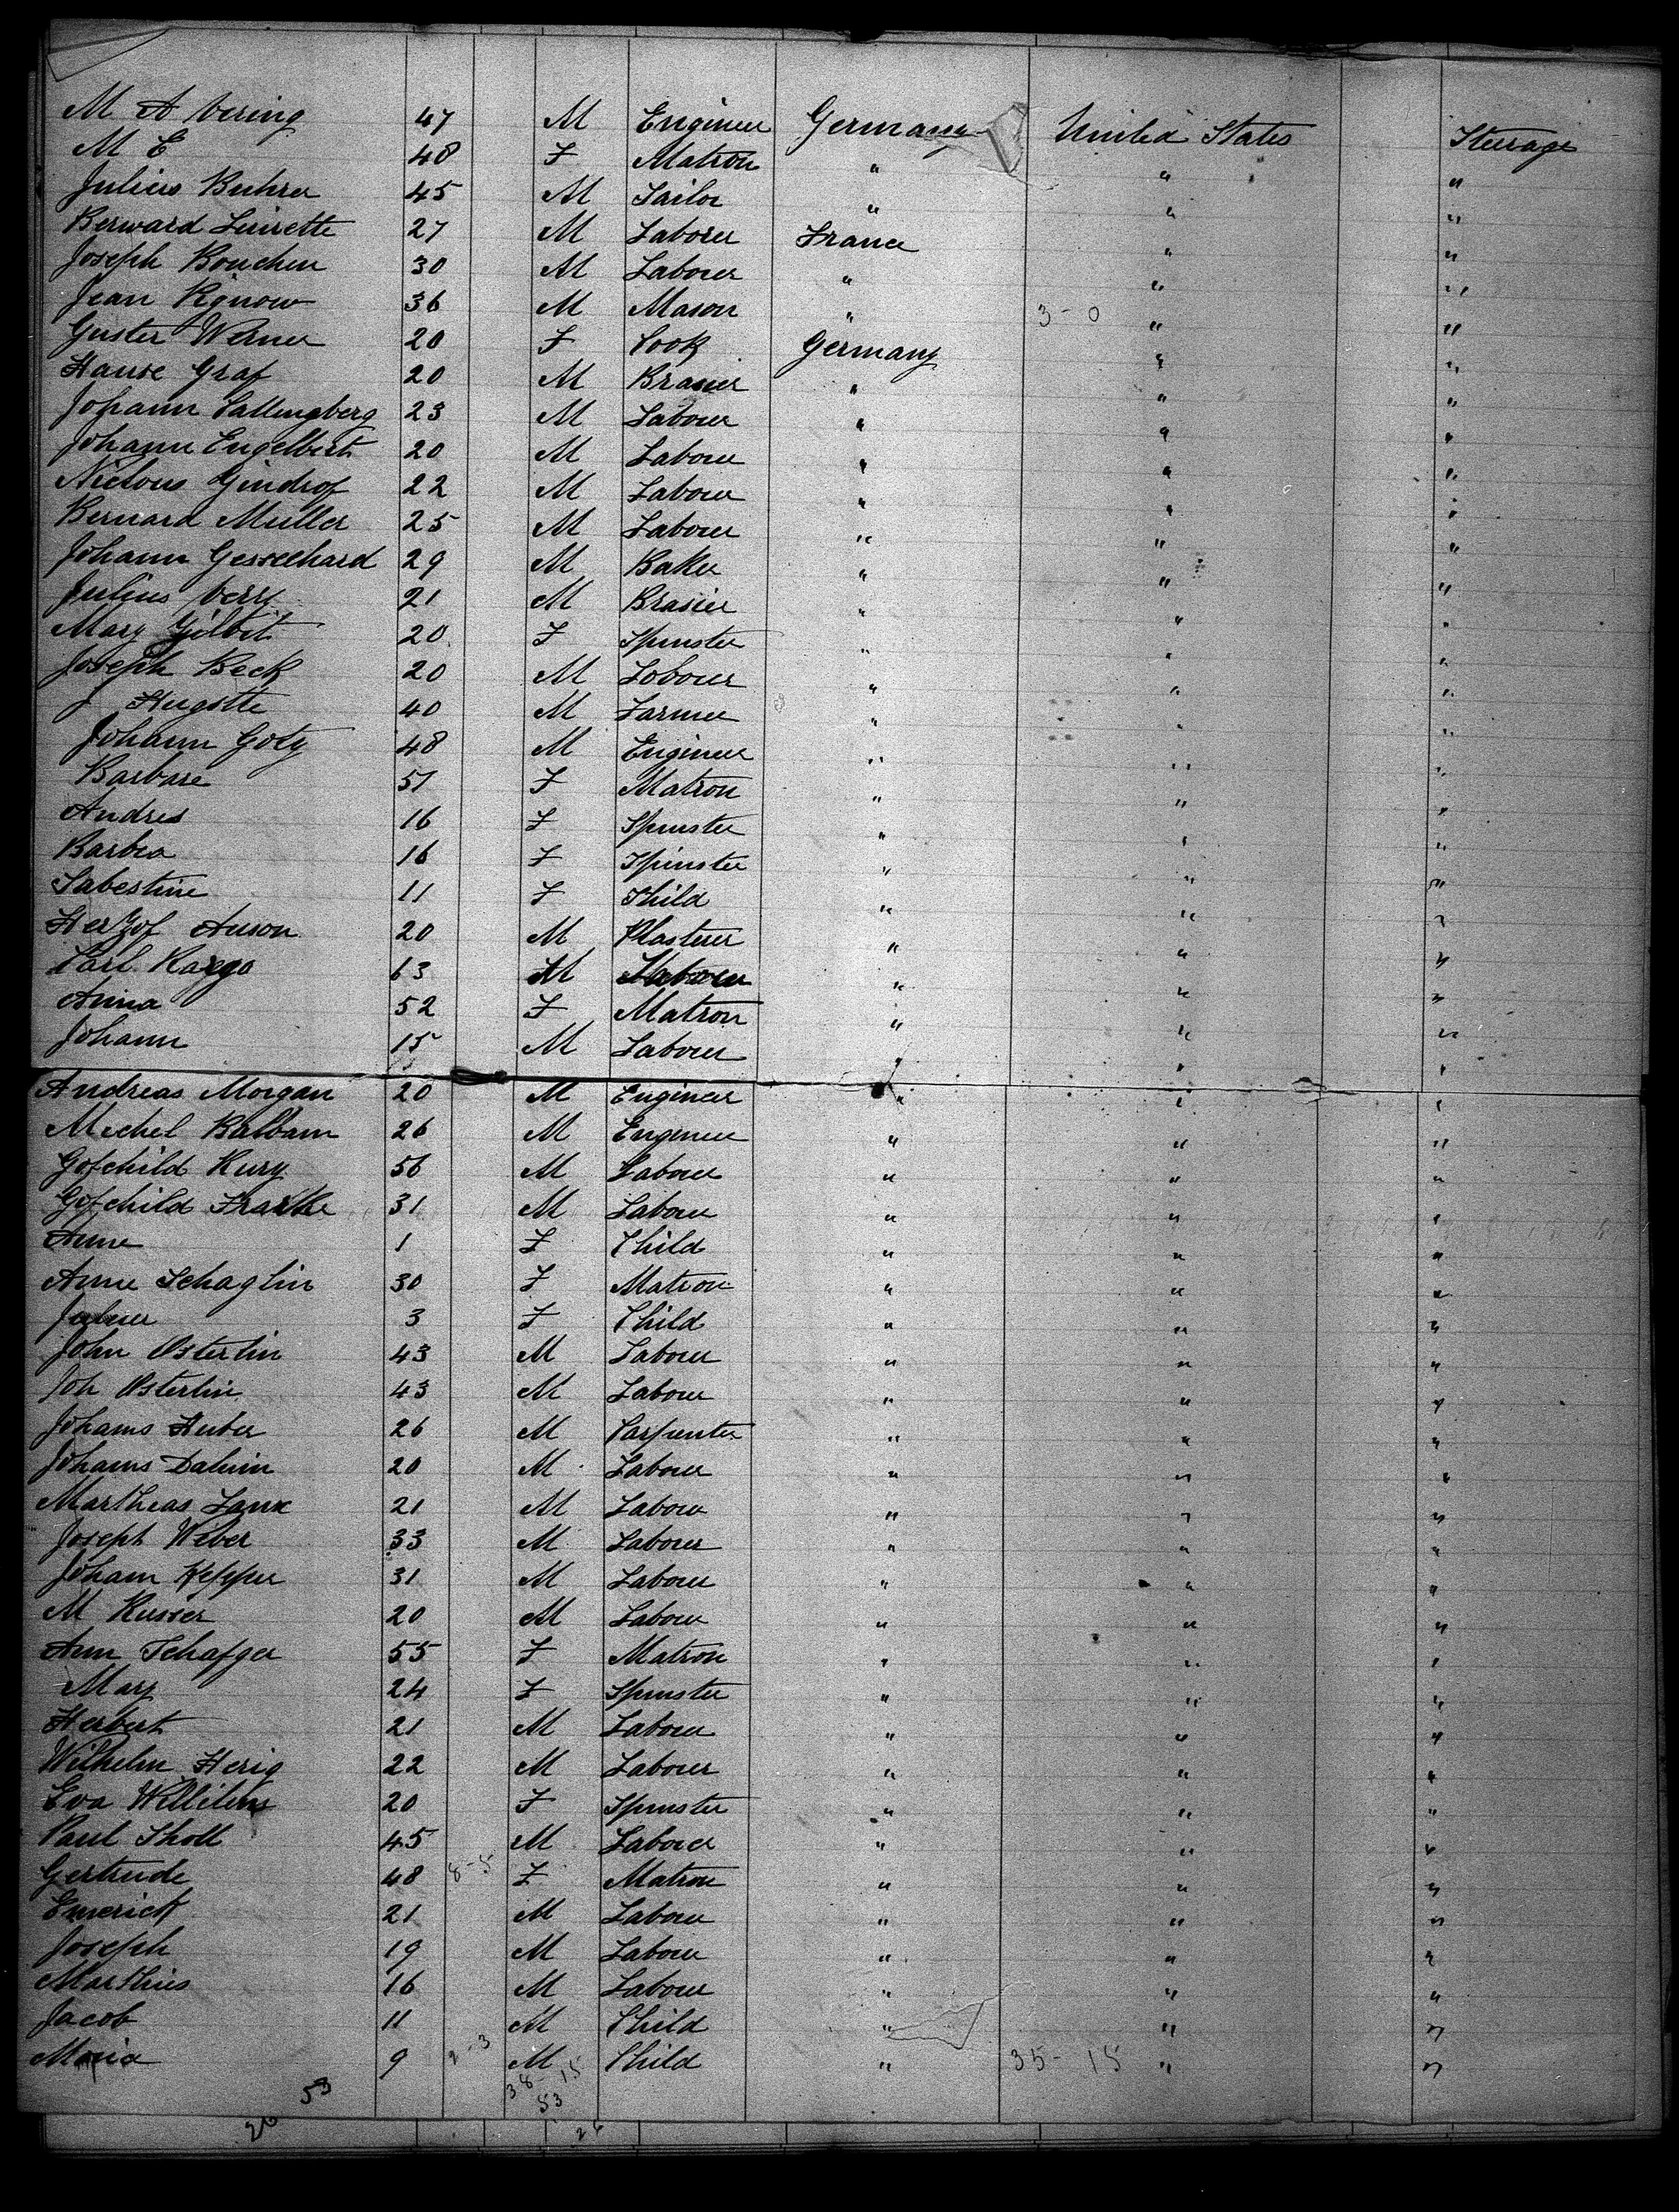 M A Vering 47 M Engineer Germany United States Steerage
M E 48 F Matron " " "
Julius Buhrer 45 M Tailor " " "
Berward Linirette 27 M Laborer France " "
Joseph Boucher 30 M Laborer " " "
Jean Rignow 36 M Mason " 3-0 " "
Guster Werner 20 F Cook Germany " "
Hause Graf 20 M Brasier " " "
Johann Callingberg 23 M Labourer " " "
Johann Engelbert 20 M Labourer " " "
Gindrof 22 M Labourer " " "
Bernard Muller 25 M Labourer " " "
Johann Gesselhard 29 M Baker " " "
Julius Very 21 M Brasier " " "
Mary Gilbit 20 F Spinster " " "
Joseph Beck 20 M Labourer " " "
J Hugotte 40 M Farmer " " "
Johann Goty 48 M Engineer " " "
Barbare 51 F Matron " " "
Andres 16 F Spinster " " "
Barbra 16 F Spinster " " "
Sabestine 11 F Child " " "
Herzof Anson 20 M Plasterer " " "
Carl Kargo 63 M Labourer " " "
Anna 52 F Matron " " "
Johann 15 M Labourer " " "
Andreas Morgan 20 M Engineer " " "
Michel Balbam 26 M Engineer " " "
Gofchild Kury 56 M Labourer " " "
Gofchild Franke 31 M Labourer " " "
Anne 1 F Child " " "
Anne Schaglin 30 F Matron " " "
3 F Child " " "
John Osterlin 43 M Labourer " " "
Joh Osterlin 43 M Labourer " " "
Johams Huber 26 M Carpenter " " "
Johams Daluim 20 M Labourer " " "
Martheas Laux 21 M Labourer " " "
Joseph Weber 33 M Labourer " " "
Joham Kepper 31 M Labourer " " "
M Kusser 20 M Labourer " " "
Ann Schafger 55 F Matron " " "
Mary 24 F Spinster " " "
Herbert 21 M Labourer " " "
Wilhelm Herig 22 M Labourer " " "
Eva Willilms 20 F Spinster " " "
Paul Tholl 45 M Labourer " " "
Gertrude 48 8-5 F Matron " " "
Emerick 21 M Labourer " " "
Joseph 19 M Labourer " " "
Marthius 16 M Labourer " " "
Jacob 11 M Child " " "
Maria 9 2-3 M Child " 35-15 " "
38-15
53 53
26 26